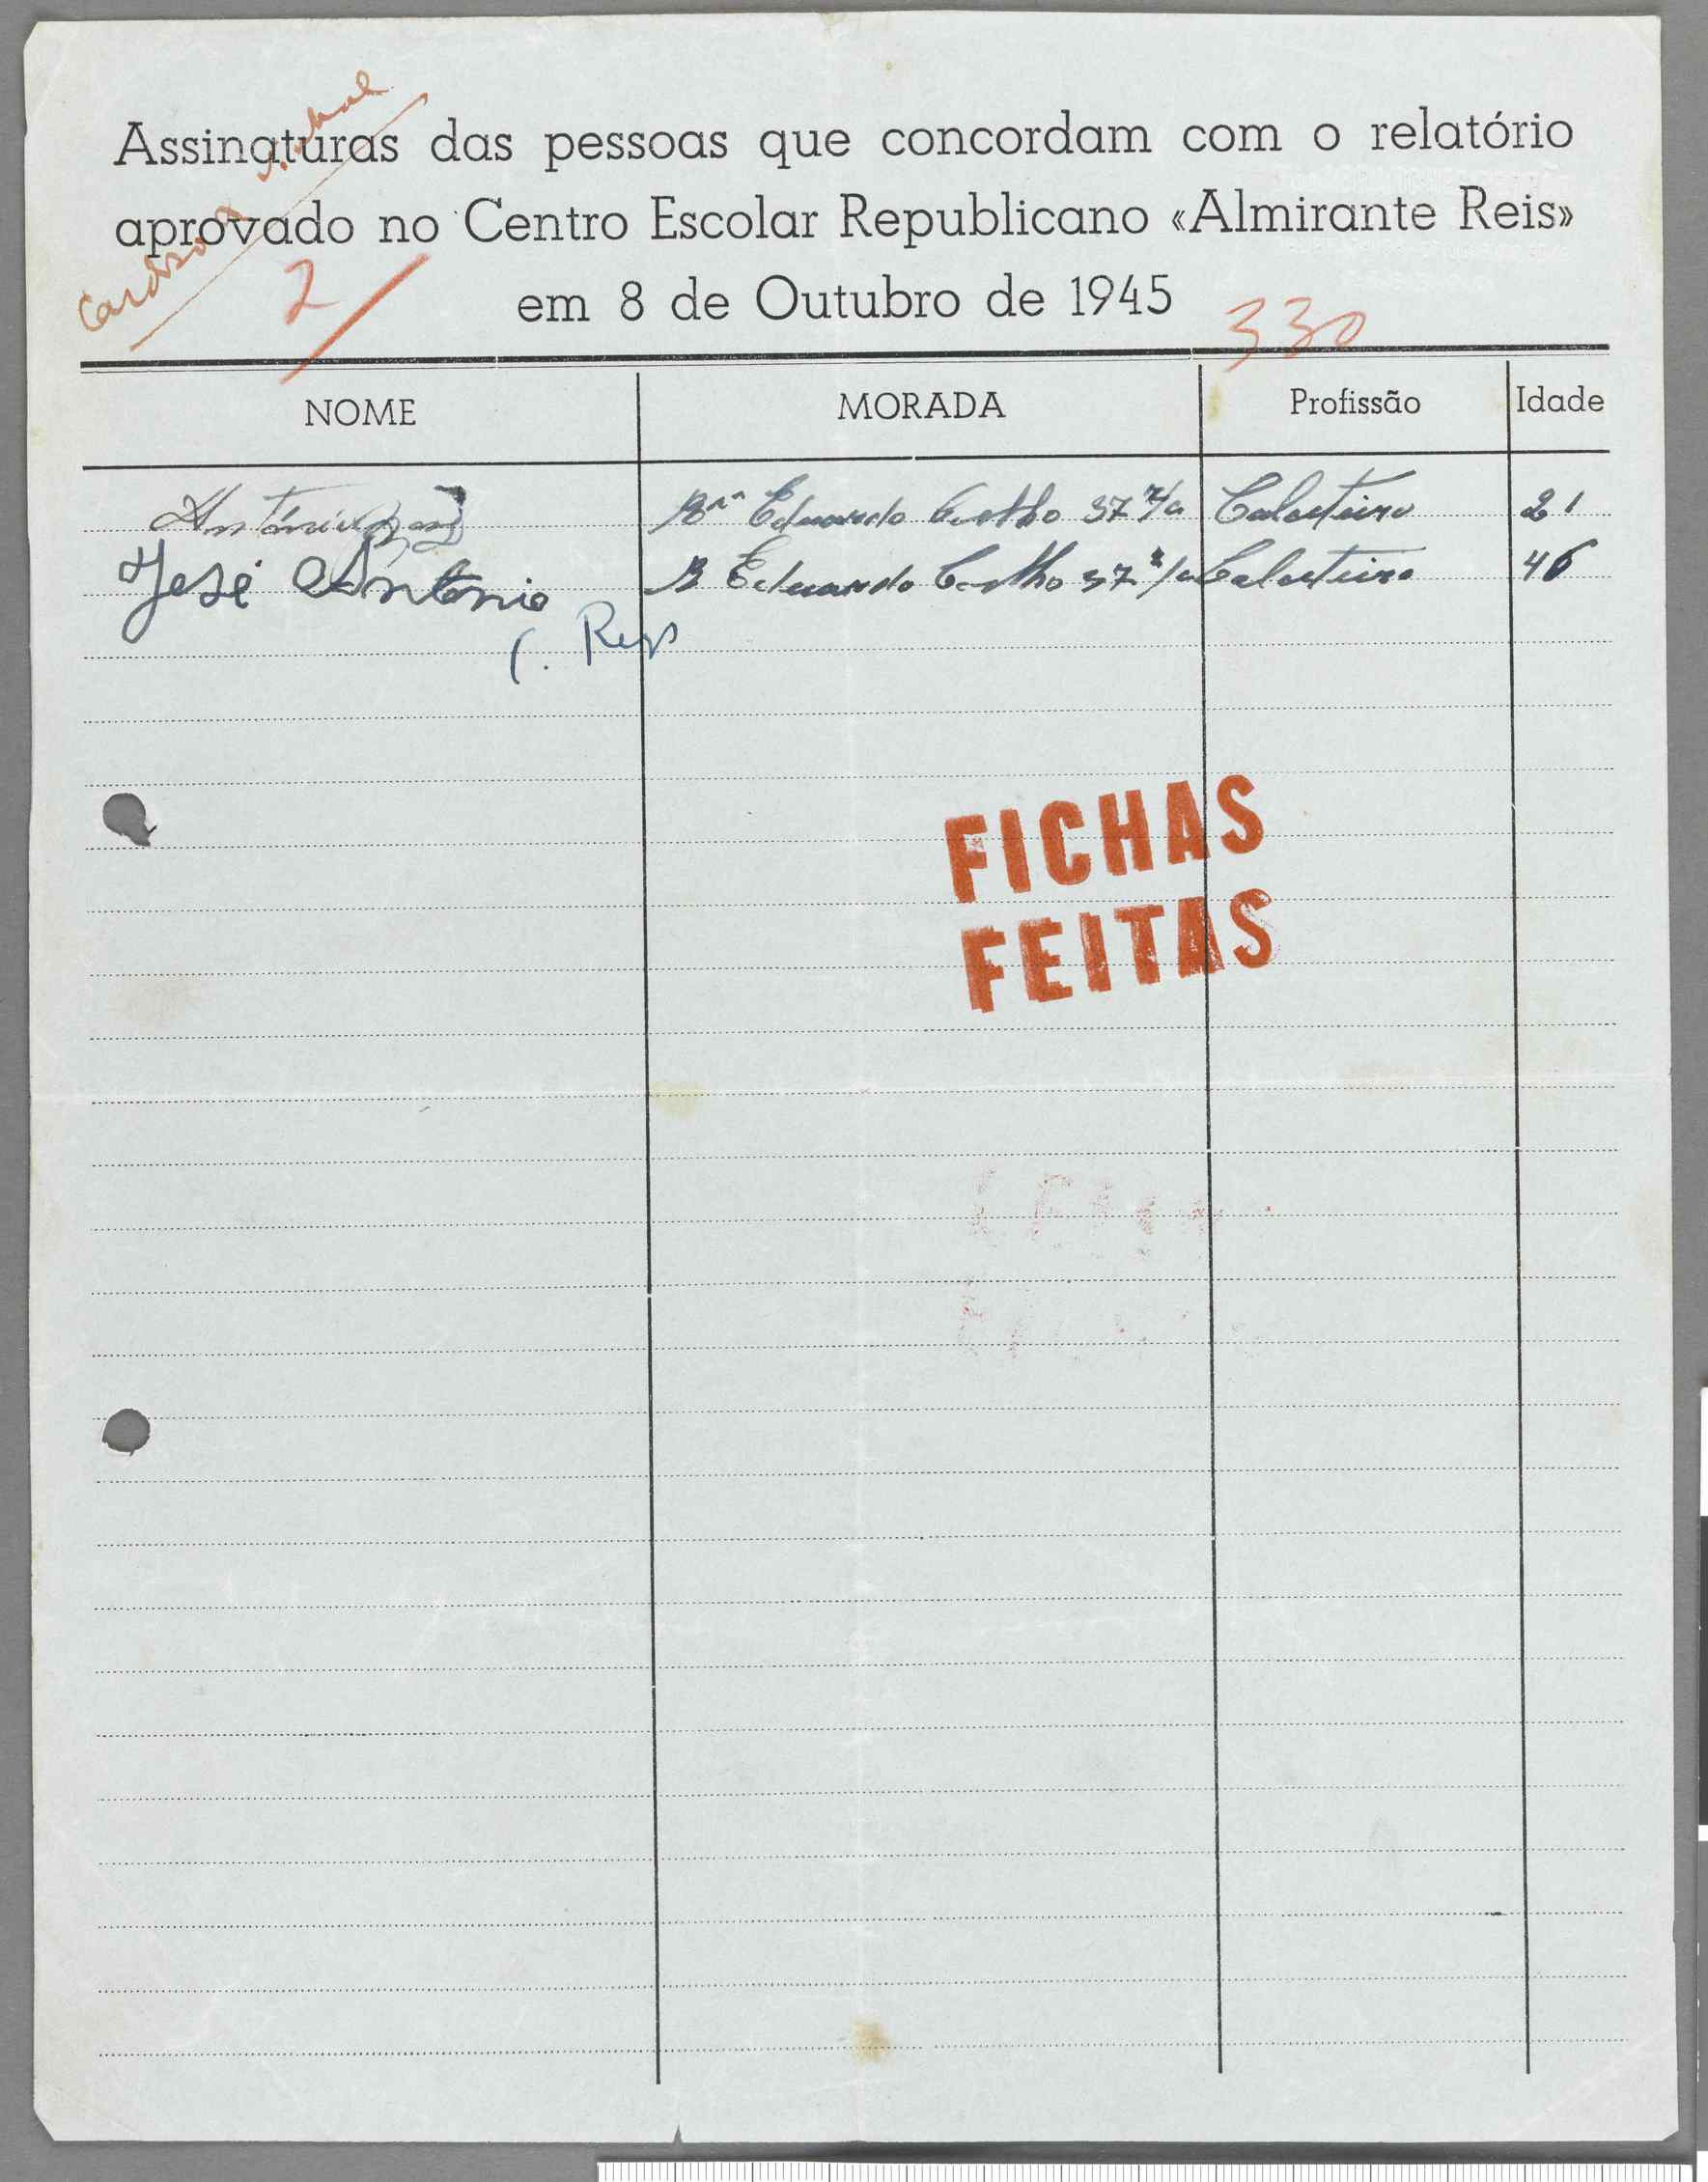 Assinaturas das pessoas que concordam com o relatório
aprovado no Centro Escolar Republicano «Almirante Reis»
em 8 de Outubro de 1945
Cardoso
2
330
NOME MORADA Profissão Idade
António Eduardo Coelho 37 21
José António Eduardo Coelho 37 46
FICHAS
FEITAS